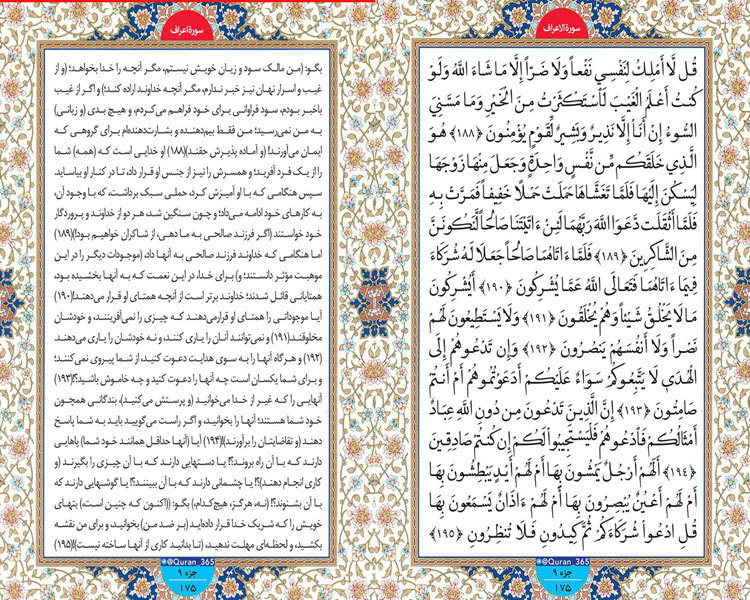 سورة الاعراف
قُل لَّا أَمْلِكُ لِنَفْسِي نَفْعاً وَلَا ضَرّاً إِلَّا مَا شَاءَ اللَّهُ وَلَوْ
كُنتُ أَعْلَمُ الْغَيْبَ لَاسْتَكْثَرْتُ مِنَ الْخَيْرِ وَمَا مَسَّنِيَ
السُّوءُ إِنْ أَنَا إِلَّا نَذِيرٌ وَبَشِيرٌ لِّقَوْمٍ يُؤْمِنُونَ ﴿۱۸۸﴾ هُوَ
الَّذِي خَلَقَكُم مِّن نَّفْسٍ وَاحِدَةٍ وَجَعَلَ مِنْهَا زَوْجَهَا
لِيَسْكُنَ إِلَيْهَا فَلَمَّا تَغَشَّاهَا حَمَلَتْ حَمْلاً خَفِيفاً فَمَرَّتْ بِهِ
فَلَمَّا أَثْقَلَت دَّعَوَا اللَّهَ رَبَّهُمَا لَئِنْ ءَاتَيْتَنَا صَالِحاً لَّنَكُونَنَّ
مِنَ الشَّاكِرِينَ ﴿۱۸۹﴾ فَلَمَّا ءَاتَاهُمَا صَالِحاً جَعَلَا لَهُ شُرَكَاءَ
فِيمَا ءَاتَاهُمَا فَتَعَالَى اللَّهُ عَمَّا يُشْرِكُونَ ﴿۱۹۰﴾ أَيُشْرِكُونَ
مَا لَا يَخْلُقُ شَيْئاً وَهُمْ يُخْلَقُونَ ﴿۱۹۱﴾ وَلَا يَسْتَطِيعُونَ لَهُمْ
نَصْراً وَلَا أَنفُسَهُمْ يَنصُرُونَ ﴿۱۹۲﴾ وَإِن تَدْعُوهُمْ إِلَى
الْهُدَى لَا يَتَّبِعُوكُمْ سَوَاءٌ عَلَيْكُمْ أَدَعَوْتُمُوهُمْ أَمْ أَنتُمْ
صَامِتُونَ ﴿۱۹۳﴾ إِنَّ الَّذِينَ تَدْعُونَ مِن دُونِ اللَّهِ عِبَادٌ
أَمْثَالُكُمْ فَادْعُوهُمْ فَلْيَسْتَجِيبُوا لَكُمْ إِن كُنتُمْ صَادِقِينَ
﴿۱۹٤﴾ أَلَهُمْ أَرْجُلٌ يَمْشُونَ بِهَا أَمْ لَهُمْ أَيْدٍ يَبْطِشُونَ بِهَا
أَمْ لَهُمْ أَعْيُنٌ يُبْصِرُونَ بِهَا أَمْ لَهُمْ ءَاذَانٌ يَسْمَعُونَ بِهَا
قُلِ ادْعُوا شُرَكَاءَكُمْ ثُمَّ كِيدُونِ فَلَا تُنظِرُونِ ﴿۱۹۵﴾
@Quran_365
جزء ۹
۱۷۵
سورهٔ اعراف
بگو: (من مالک سود و زیان خویش نیستم، مگر آنچه را خدا بخواهد؛ (و از
غیب و اسرار نهان نیز خبر ندارم، مگر آنچه خداوند اراده کند؛) و اگر از غیب
باخبر بودم، سود فراوانی برای خود فراهم می‌کردم، و هیچ بدی (و زیانی)
به من نمی‌رسید؛ من فقط بیم‌دهنده و بشارت‌دهنده‌ام برای گروهی که
ایمان می‌آورند! (و آماده پذیرش حقند)(۱۸۸) او خدایی است که (همه) شما
را از یک فرد آفرید؛ و همسرش را نیز از جنس او قرار داد، تا در کنار او بیاساید.
سپس هنگامی که با او آمیزش کرد، حملی سبک برداشت، که با وجود آن،
به کارهای خود ادامه می‌داد؛ و چون سنگین شد، هر دو از خداوند و پروردگار
خود خواستند (اگر فرزند صالحی به ما دهی، از شاکران خواهیم بود!)(۱۸۹)
اما هنگامی که خداوند فرزند صالحی به آنها داد، (موجودات دیگر را در این
موهبت مؤثر دانستند؛ و) برای خدا، در این نعمت که به آنها بخشیده بود،
همتایانی قائل شدند؛ خداوند برتر است از آنچه همتای او قرار می‌دهند!(۱۹۰)
آیا موجوداتی را همتای او قرارمی‌دهند که چیزی را نمی‌آفرینند، و خودشان
مخلوقند.(۱۹۱) و نمی‌توانند آنان را یاری کنند، و نه خودشان را یاری می‌دهند.
(۱۹۲) و هرگاه آنها را به سوی هدایت دعوت کنید، از شما پیروی نمی‌کنند؛
و برای شما یکسان است چه آنها را دعوت کنید و چه خاموش باشید؟!(۱۹۳)
آنهایی را که غیر از خدا می‌خوانید (و پرستش می‌کنید)، بندگانی همچون
خود شما هستند؛ آنها را بخوانید، و اگر راست می‌گویید باید به شما پاسخ
دهند (و تقاضایتان را برآورند)!(۱۹۴) آیا (آنها حداقل همانند خود شما) پاهایی
دارند که با آن راه بروند؟! یا دستهایی دارند که با آن چیزی را بگیرند (و
کاری انجام دهند)؟! یا چشمانی دارند که با آن ببینند؟! یا گوشهایی دارند که
با آن بشنوند؟! (نه، هرگز، هیچ‌کدام،) بگو: ((اکنون که چنین است،) بتهای
خویش را که شریک خدا قرار داده‌اید (بر ضد من) بخوانید، و برای من نقشه
بکشید، و لحظه‌ای مهلت ندهید، (تا بدانید کاری از آنها ساخته نیست)!(۱۹۵)
@Quran_365
جزء ۹
۱۷۵